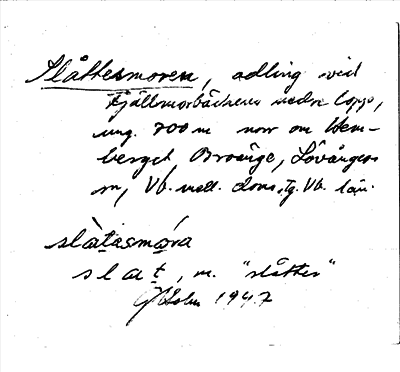 Slåttesmoren, odling vid
Fjällmorbäckens nedre lopp,
ung. 700 m nnv om Hem-
berget, Broänge, Lövångers
sn, Vb. nell. doms. Tg. Vb. län.
slàtasmǿra
slat, m. "slåtter"
1947